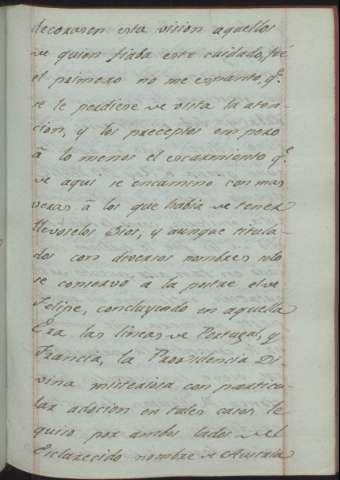 decorasen esta vision aquellos
de quien fiaba este cuidado, fué
el primero no me espanto, q.e
se le perdiese de vista la aten-
cion, y los preceptos em pero
â lo menos el escarmiento q.e
de aqui se encamino con mas
veras â los que habia de tener
Dios, y aunque titula-
dos con diversos nombres solo
se conservó a la postre el de
Felipe, concluyendo en aquella
Era las lineas de Portugal, y
Francia, la Providencia Di-
vina misteriosa con particu-
lar adocion en tales casos le
quiso por ambos lados del
Esclarecido nombre de Austria